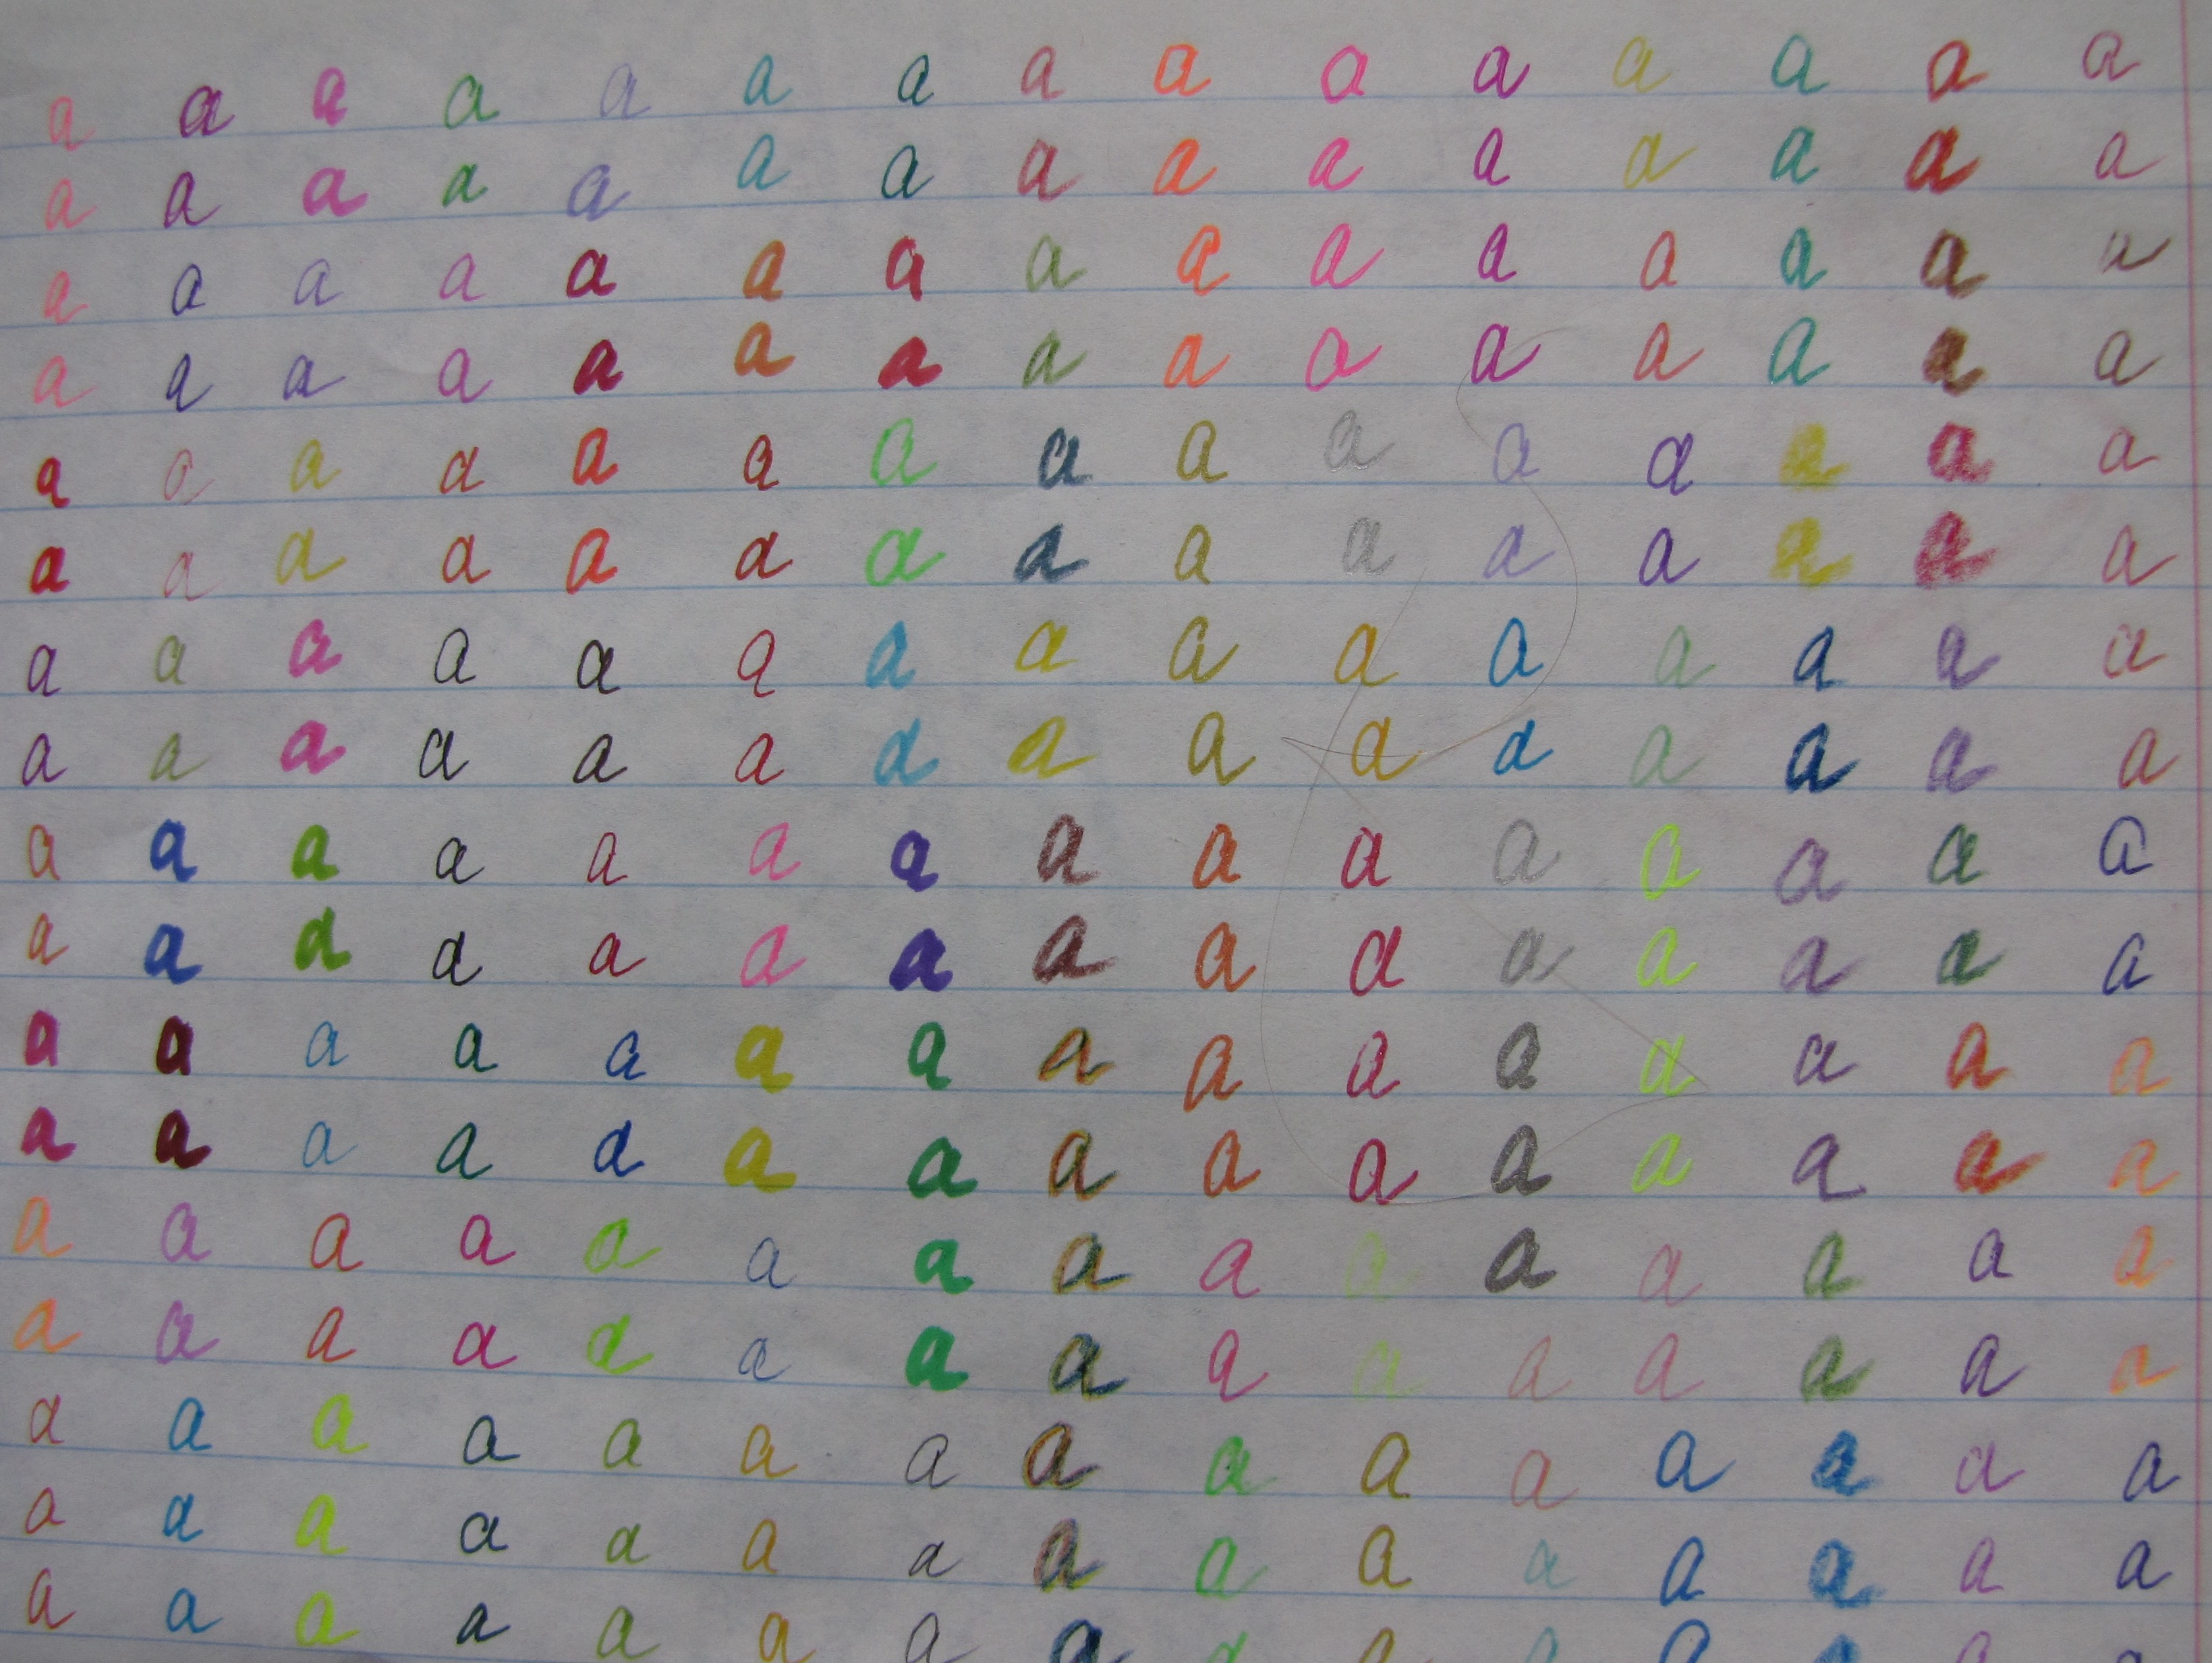 a a a a a a a a a a a a a a a
a a a a a a a a a a a a a a a
a a a a a a a a a a a a a a a
a a a a a a a a a a a a a a a
a a a a a a a a a a a a a a a
a a a a a a a a a a a a a a a
a a a a a a a a a a a a a a a
a a a a a a a a a a a a a a a
a a a a a a a a a a a a a a a
a a a a a a a a a a a a a a a
a a a a a a a a a a a a a a a
a a a a a a a a a a a a a a a
a a a a a a a a a a a a a a a
a a a a a a a a a a a a a a a
a a a a a a a a a a a a a a a
a a a a a a a a a a a a a a a
a a a a a a a a a a a a a a a